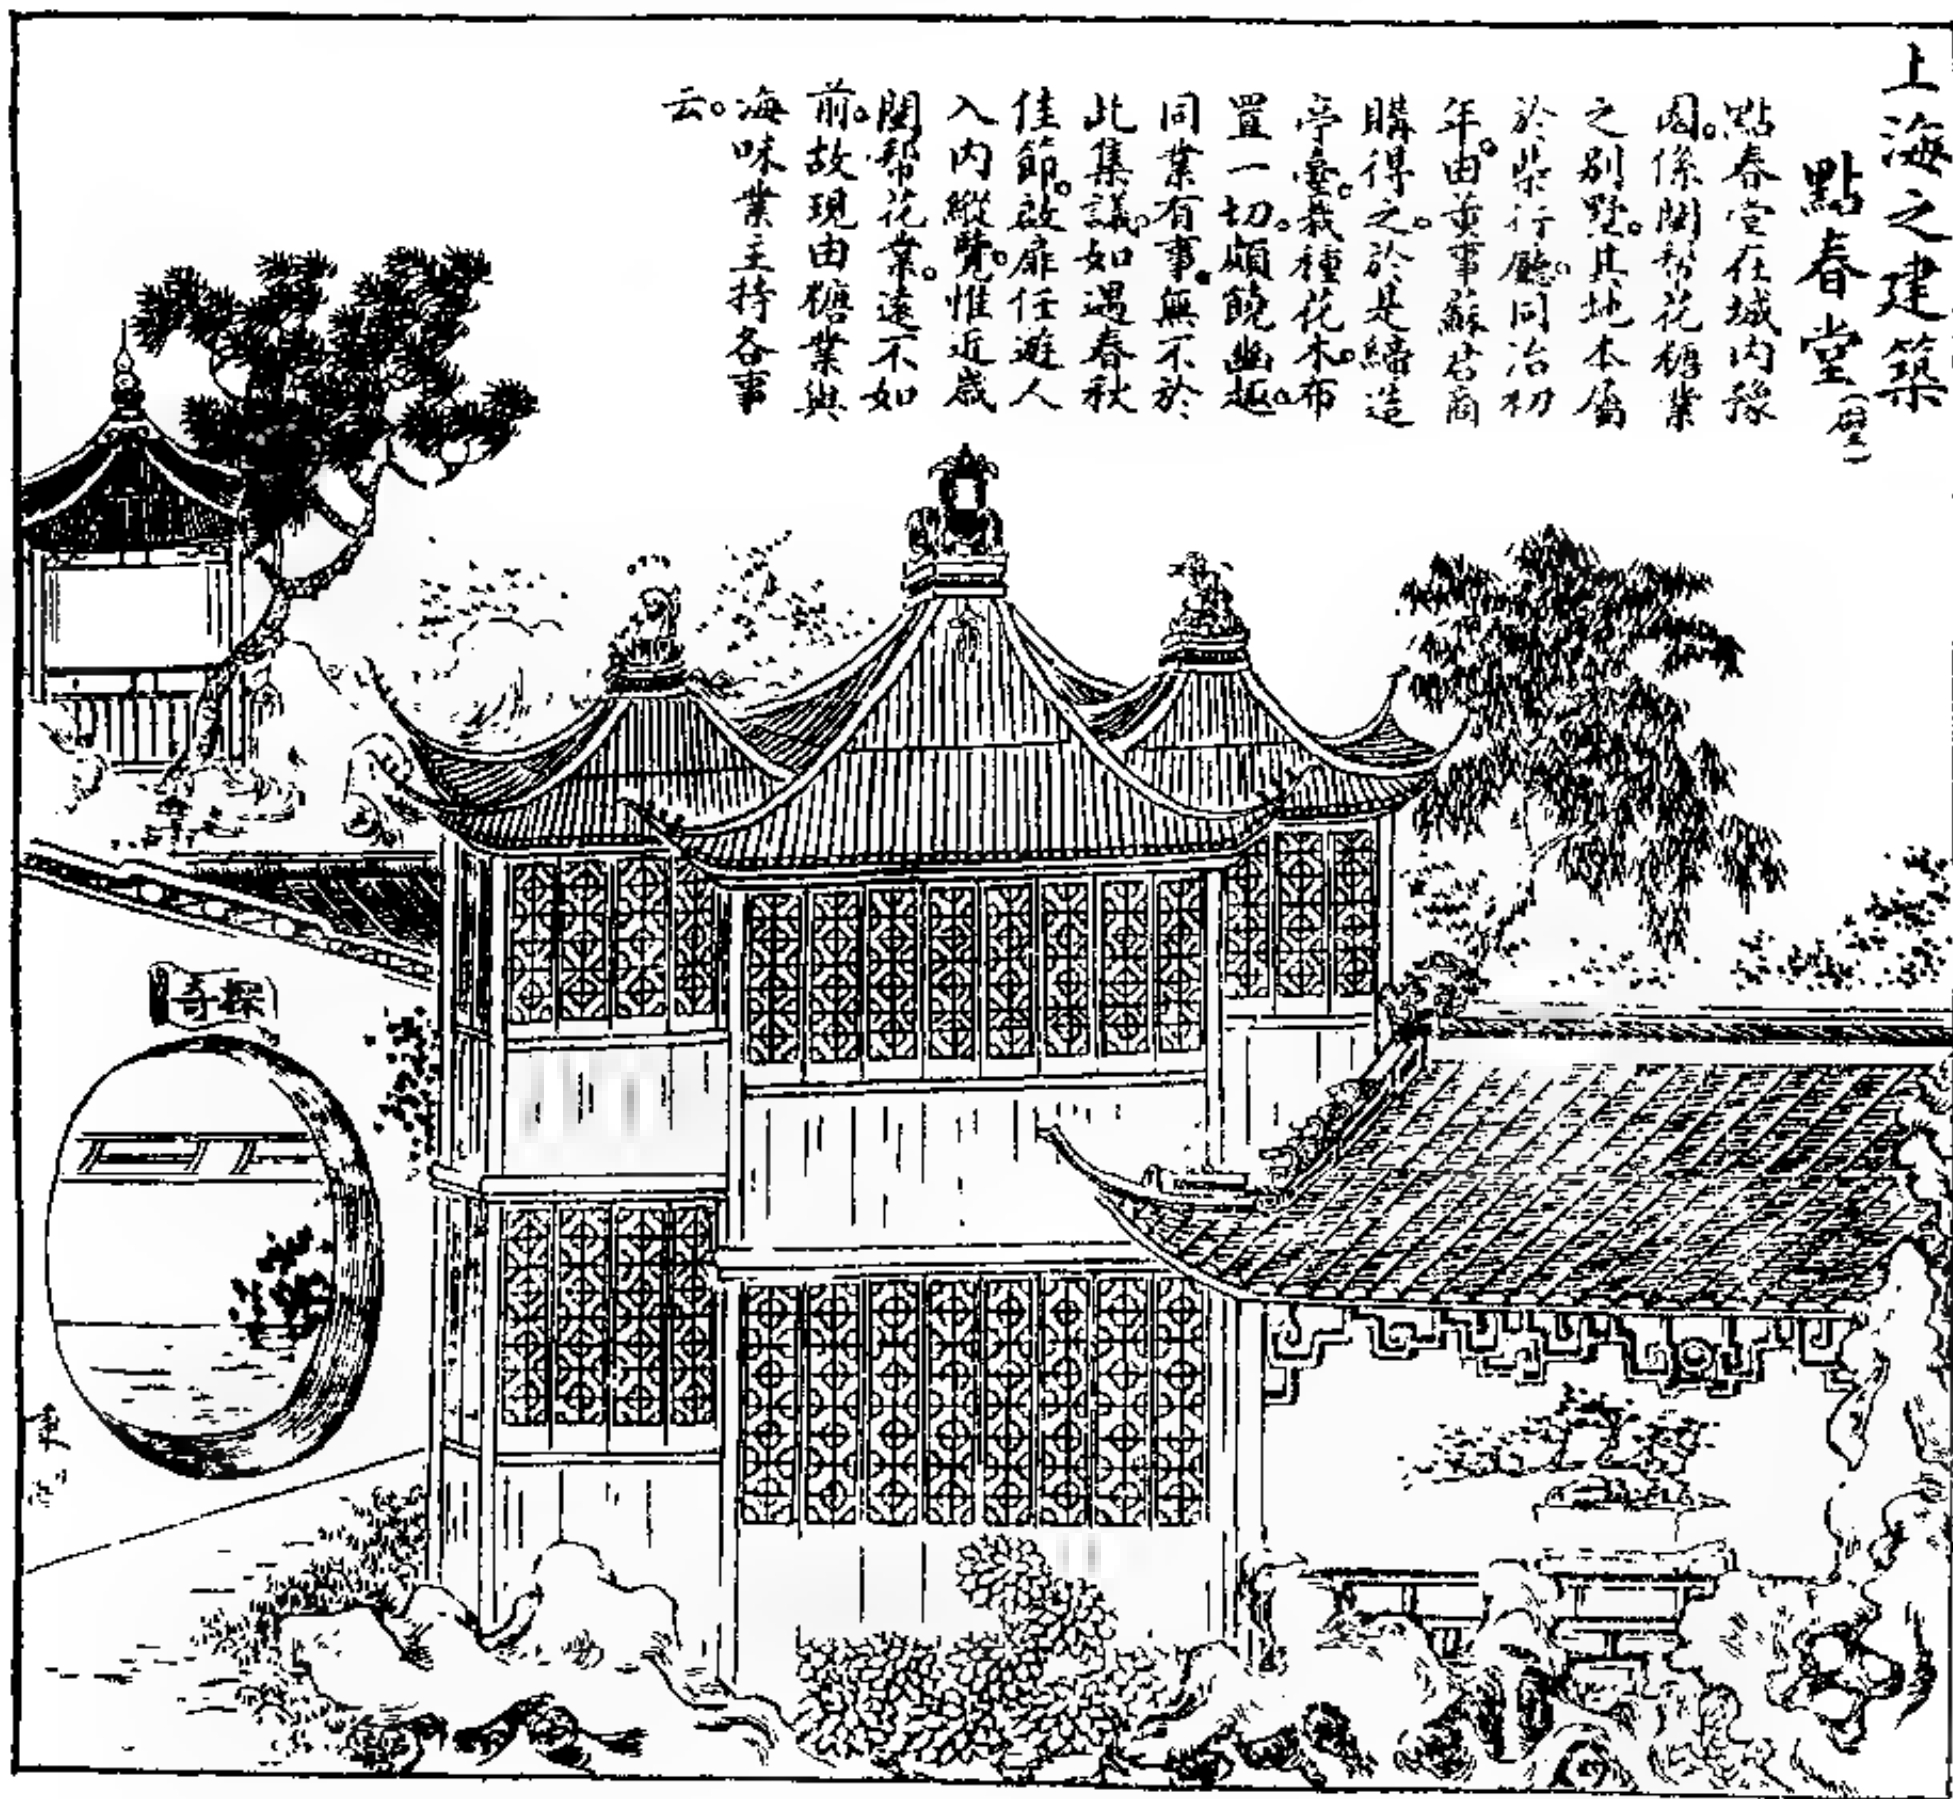 上海之建築
點春堂（壁）
點春堂在城内豫
園。係閩帮花糖業
之别墅。其地本屬
於柴行廳。同治初
年。由董事蘇君商
購得之。於是締造
亭臺。栽種花木。布
置一切。頗饒幽趣。
同業有事。無不於
此集議。如遇春秋
佳節。啟扉任遊人
入内縱覽。惟近歲
閩帮花業。遠不如
前。故現由糖業與
海味業主持各事
云。
探奇